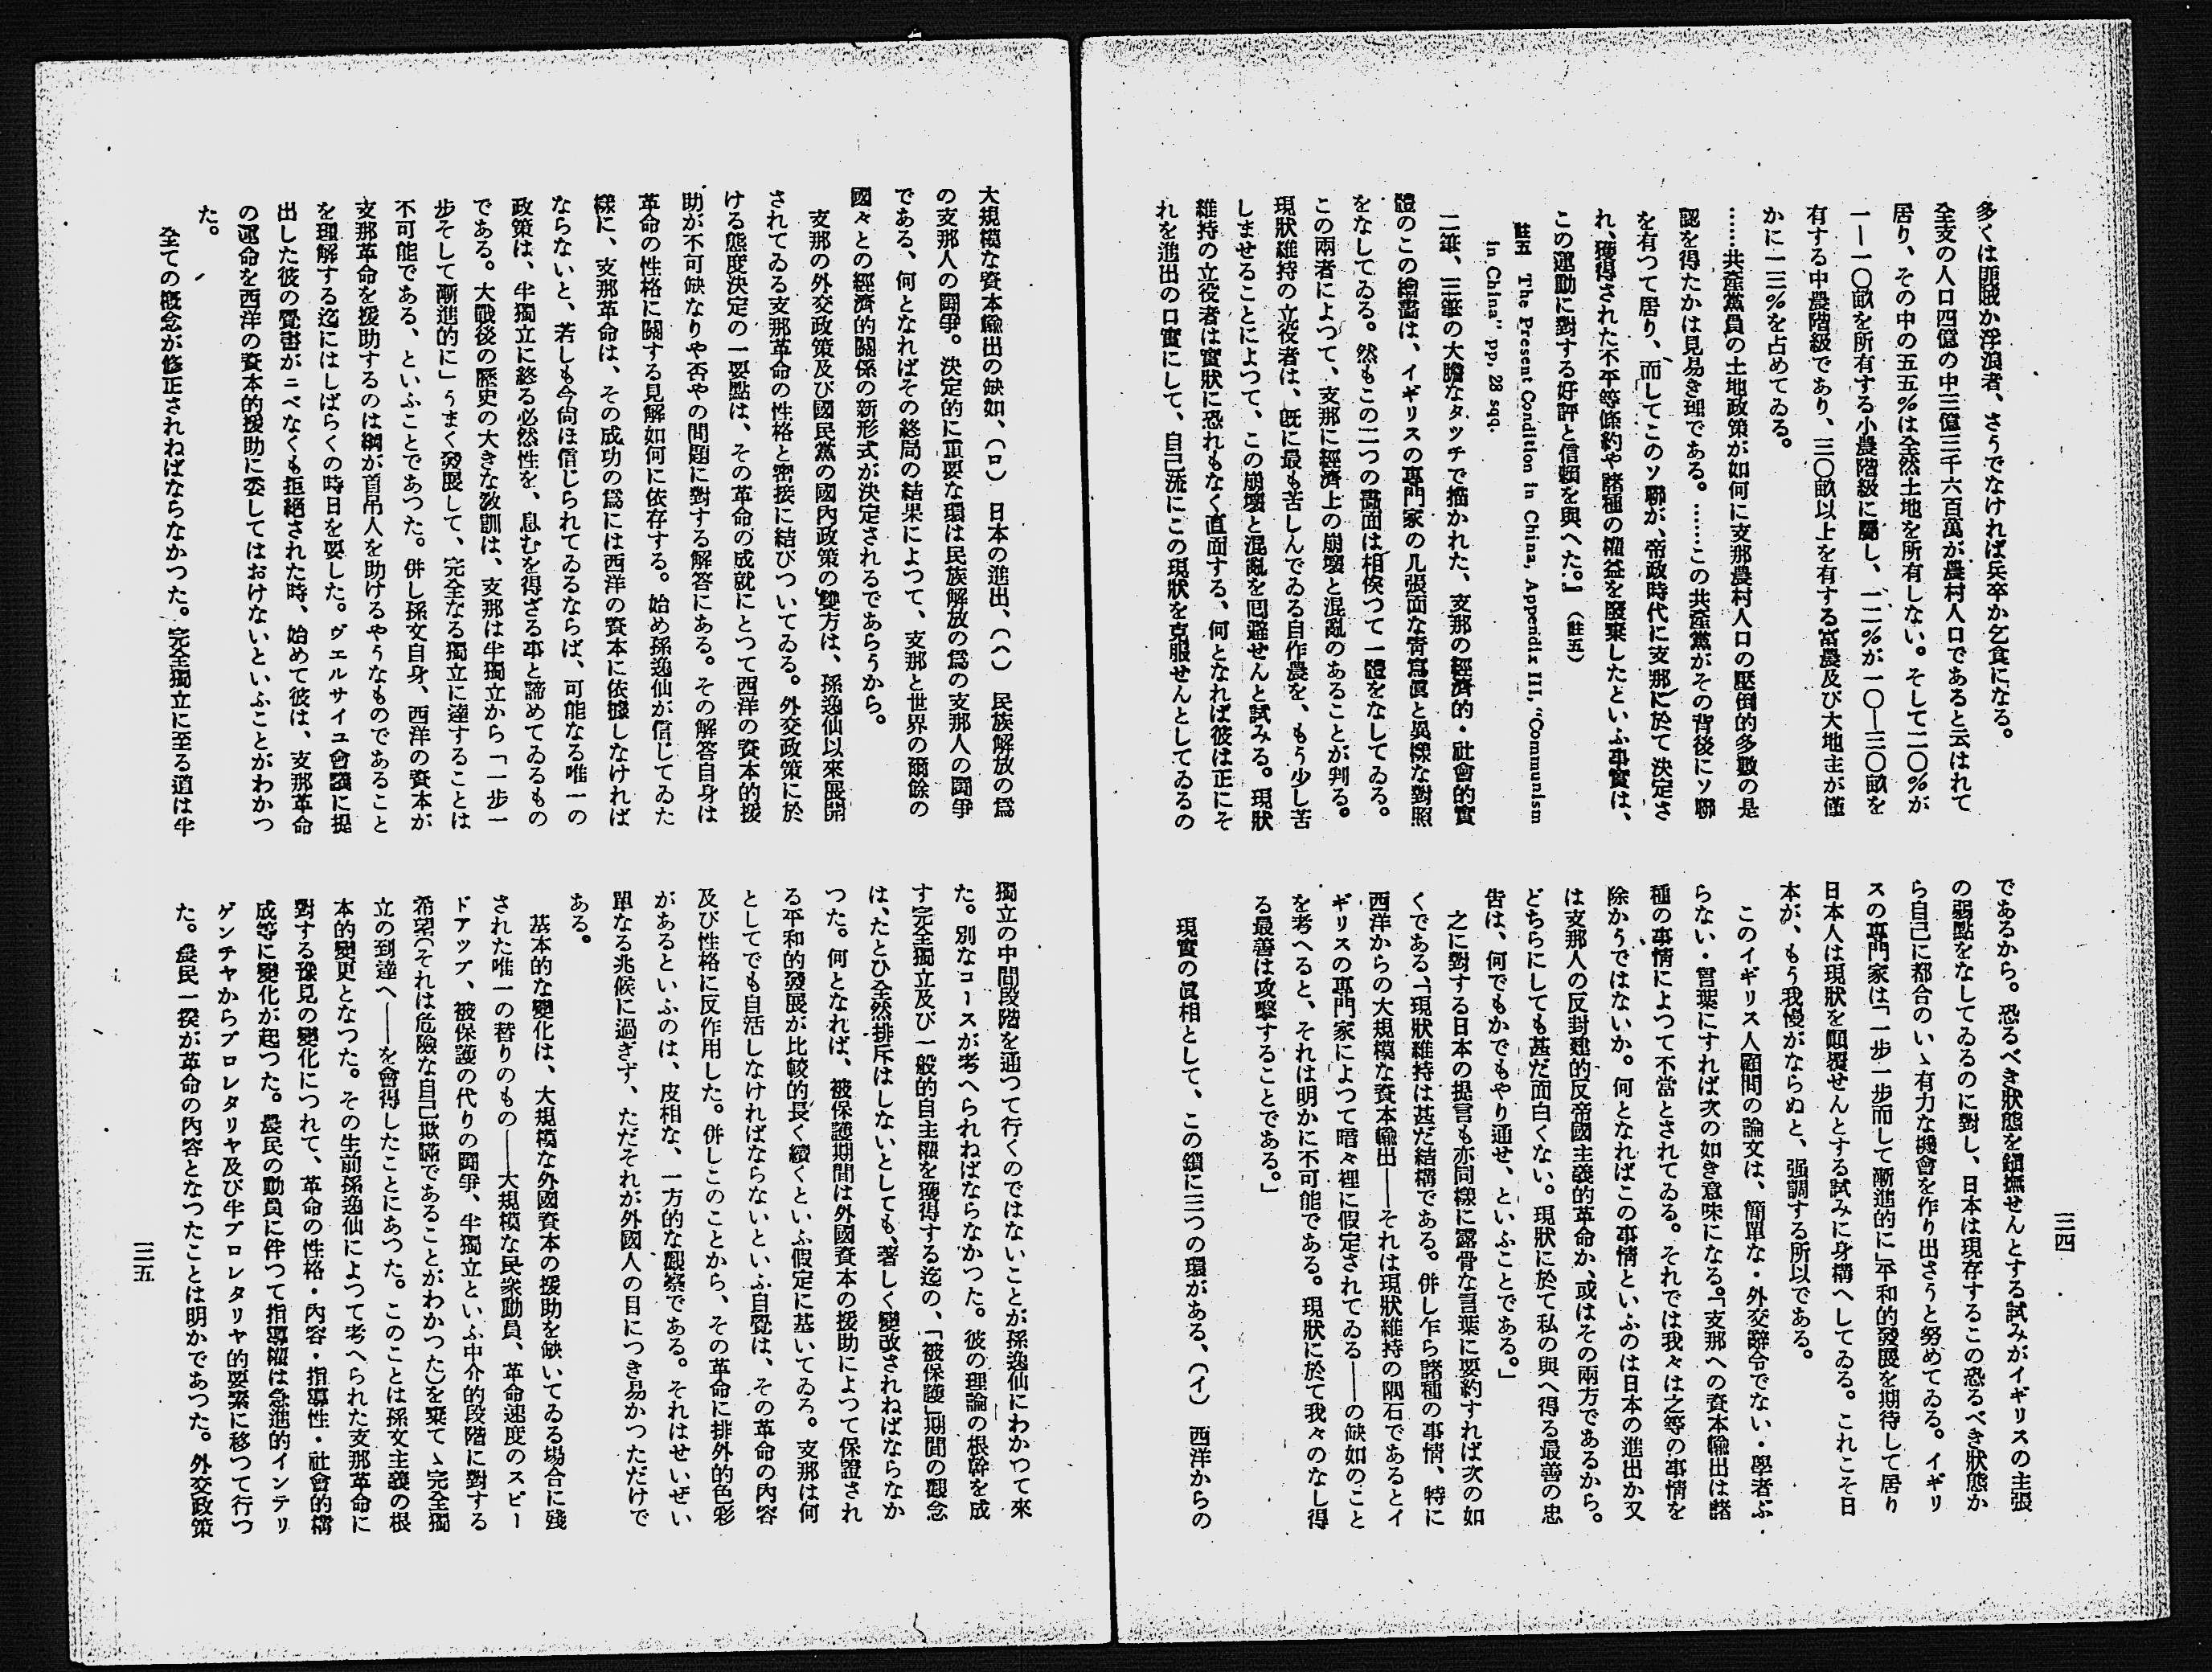 三四
多くは匪賊か浮浪者、さうでなければ兵卒か乞食になる。
全支の人口四億の中三億三千六百萬が農村人口であると云はれて
居り、その中の五五%は全然土地を所有しない。そして二〇%が
一—一〇畝を所有する小農階級に屬し、一二%が一〇—三〇畝を
有する中農階級であり、三〇畝以上を有する富農及び大地主が僅
かに一三%を占めてゐる。
……共産黨員の土地政策が如何に支那農村人口の壓倒的多數の是
認を得たかは見易き理である。……この共産黨がその背後にソ聯
を有つて居り、而してこのソ聯が、帝政時代に支那に於て決定さ
れ、獲得された不平等條約や諸種の權益を廢棄したといふ事實は、
この運動に對する好評と信賴を與へた。』(註五)
註五 The Present Condition in China, Appendix III, "Communism
in China" pp, 28 sqq.
二筆、三筆の大膽なタッチで描かれた、支那の經濟的・社會的實
體のこの繪畫は、イギリスの專門家の几張面な靑寫眞と異樣な對照
をなしてゐる。然もこの二つの畫面は相俟つて一體をなしてゐる。
この兩者によつて、支那に經濟上の崩壞と混亂のあることが判る。
現狀維持の立役者は、旣に最も苦しんでゐる自作農を、もう少し苦
しませることによつて、この崩壞と混亂を囘避せんと試みる。現狀
維持の立役者は實狀に恐れもなく直面する、何となれば彼は正にそ
れを進出の口實にして、自己流にこの現狀を克服せんとしてゐるの
であるから。恐るべき狀態を鎭撫せんとする試みがイギリスの主張
の弱點をなしてゐるのに對し、日本は現存するこの恐るべき狀態か
ら自己に都合のいゝ有力な機會を作り出さうと努めてゐる。イギリ
スの專門家は「一步一步而して漸進的に」平和的發展を期待して居り
日本人は現狀を顚覆せんとする試みに身構へしてゐる。これこそ日
本が、もう我慢がならぬと、强調する所以である。
このイギリス人顧問の論文は、簡單な・外交辭令でない・學者ぶ
らない・言葉にすれば次の如き意味になる。「支那への資本輸出は諸
種の事情によつて不當とされてゐる。それでは我々は之等の事情を
除かうではないか。何となればこの事情といふのは日本の進出か又
は支那人の反封建的反帝國主義的革命か、或はその兩方であるから。
どちらにしても甚だ面白くない。現狀に於て私の與へ得る最善の忠
告は、何でもかでもやり通せ、といふことである。」
之に對する日本の提言も亦同樣に露骨な言葉に要約すれば次の如
くである、「現狀維持は甚だ結構である。併し乍ら諸種の事情、特に
西洋からの大規模な資本輸出——それは現狀維持の隅石であるとイ
ギリスの專門家によつて暗々裡に假定されてゐる——の缺如のこと
を考へると、それは明かに不可能である。現狀に於て我々のなし得
る最善は攻擊することである。」
現實の眞相として、この鎖に三つの環がある、(イ) 西洋からの
大規模な資本輸出の缺如、(ロ) 日本の進出、(ハ) 民族解放の爲
の支那人の鬪爭。決定的に重要な環は民族解放の爲の支那人の鬪爭
である、何となればその終局の結果によつて、支那と世界の爾餘の
國々との經濟的關係の新形式が決定されるであらうから。
支那の外交政策及び國民黨の國內政策の雙方は、孫逸仙以來展開
されてゐる支那革命の性格と密接に結びついてゐる。外交政策に於
ける態度決定の一要點は、その革命の成就にとつて西洋の資本的援
助が不可缺なりや否やの問題に對する解答にある。その解答自身は
革命の性格に關する見解如何に依存する。始め孫逸仙が信じてゐた
樣に、支那革命は、その成功の爲には西洋の資本に依據しなければ
ならないと、若しも今尙ほ信じられてゐるならば、可能なる唯一の
政策は、半獨立に終る必然性を、息むを得ざる事と諦めてゐるもの
である。大戰後の歷史の大きな敎訓は、支那は半獨立から「一步一
步そして漸進的に」うまく發展して、完全なる獨立に達することは
不可能である、といふことであつた。併し孫文自身、西洋の資本が
支那革命を援助するのは綱が首吊人を助けるやうなものであること
を理解する迄にはしばらくの時日を要した。ヴェルサイユ會議に提
出した彼の覺書がニベなくも拒絕された時、始めて彼は、支那革命
の運命を西洋の資本的援助に委してはおけないといふことがわかつ
た。
全ての槪念が修正されねばならなかつた。完全獨立に至る道は半
獨立の中間段階を通つて行くのではないことが孫逸仙にわかつて來
た。別なコースが考へられねばならなかつた。彼の理論の根幹を成
す完全獨立及び一般的自主權を獲得する迄の、「被保護」期間の觀念
は、たとひ全然排斥はしないとしても、著しく變改されねばならなか
つた。何となれば、被保護期間は外國資本の援助によつて保證され
る平和的發展が比較的長く續くといふ假定に基いてゐる。支那は何
としてでも自活しなければならないといふ自覺は、その革命の內容
及び性格に反作用した。併しこのことから、その革命に排外的色彩
があるといふのは、皮相な、一方的な觀察である。それはせいぜい
單なる兆候に過ぎず、ただそれが外國人の目につき易かつただけで
ある。
基本的な變化は、大規模な外國資本の援助を缺いてゐる場合に殘
された唯一の替りのもの——大規模な民衆動員、革命速度のスピー
ドアップ、被保護の代りの鬪爭、半獨立といふ中介的段階に對する
希望(それは危險な自己欺瞞であることがわかつた)を棄てゝ完全獨
立の到達へ——を會得したことにあつた。このことは孫文主義の根
本的變更となつた。その生前孫逸仙によつて考へられた支那革命に
對する豫見の變化につれて、革命の性格・內容・指導性・社會的構
成等に變化が起つた。農民の動員に伴つて指導權は急進的インテリ
ゲンチャからプロレタリヤ及び半プロレタリヤ的要素に移つて行つ
た。農民一揆が革命の內容となつたことは明かであつた。外交政策
三五